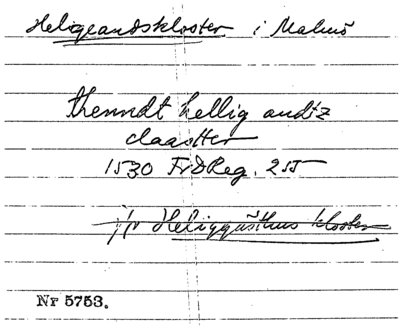 Heligeandskloster i Malmö
thenndt hellig andtz
claastter
1530 Fr I Reg. 255
jfr Heliggästhus kloster
Nr 5753.